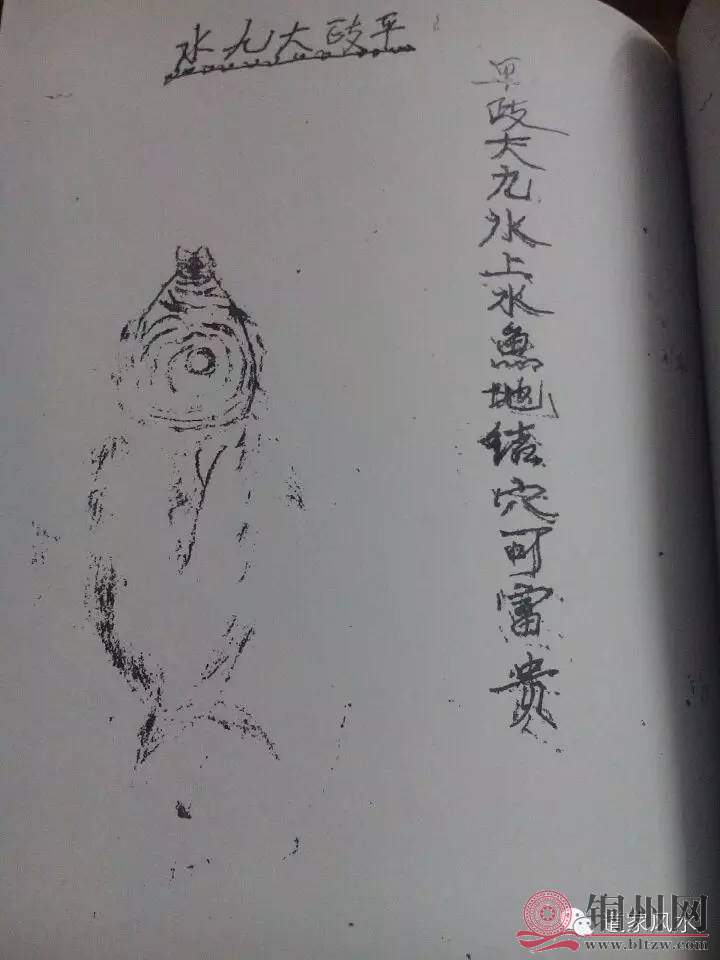 平歧大九水
平歧大九水上水魚地结穴可富贵
铜州网
道家风水
www.bltzw.com